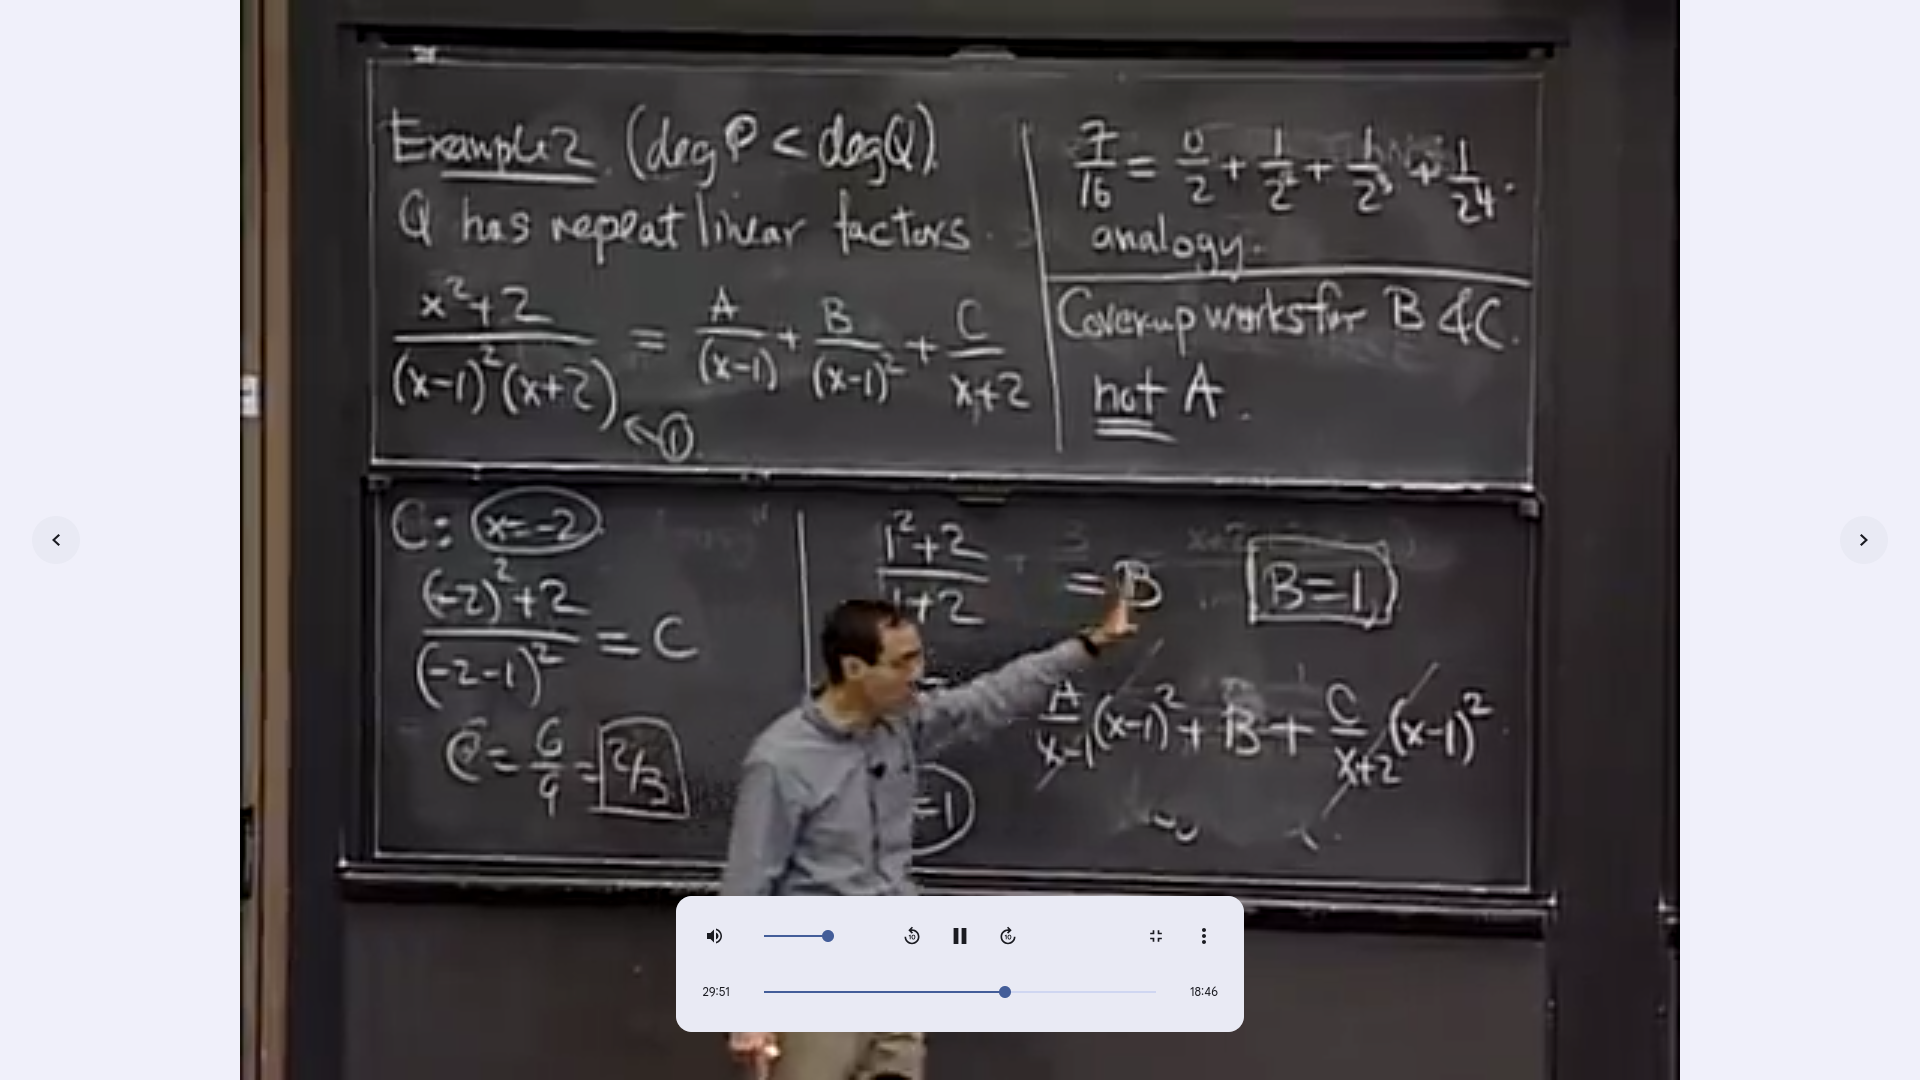 Example 2. (deg P < deg Q).
Q has repeat linear factors.
x²+2 / (x-1)²(x+2) = A/(x-1) + B/(x-1)² + C/x+2
←①
7/16 = 0/2 + 1/2² + 1/2³ + 1/2⁴.
analogy.
Coverup works for B & C.
not A.
C: x=-2
(-2)²+2 / (-2-1)² = C
C = 6/9 = 2/3
1²+2 / 1+2 = B
B=1
A/x-1 (x-1)² + B + C/x+2 (x-1)²
=1
10
10
29:51
18:46